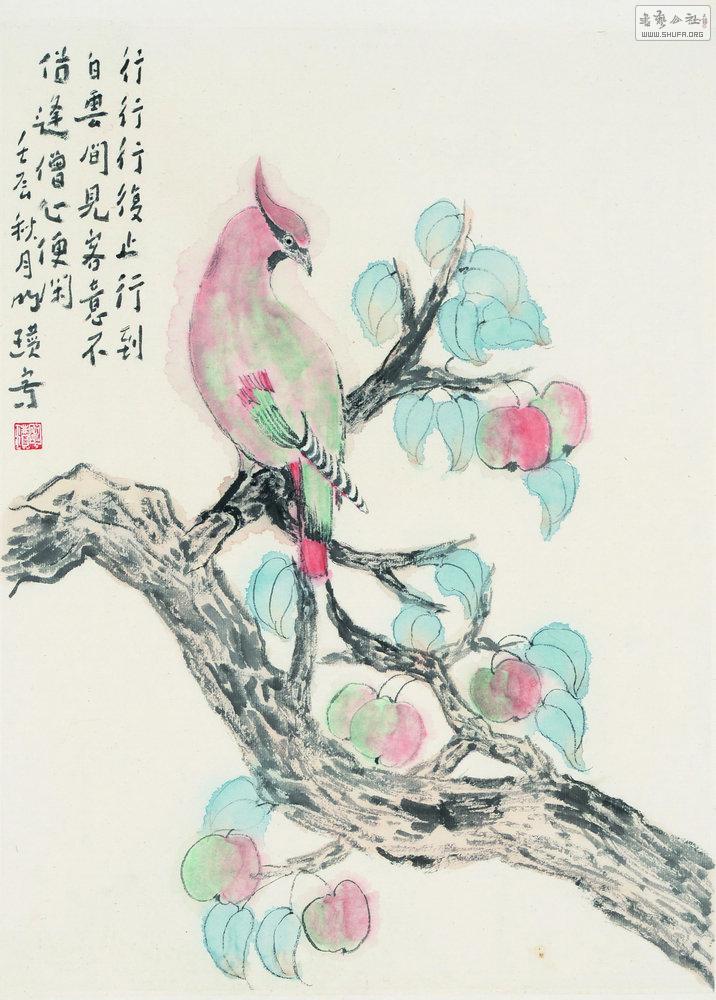 行行行復止行到
白雲間見客意不
俗逢僧心便閑
壬辰秋月
書艺公社
WWW.SHUFA.ORG